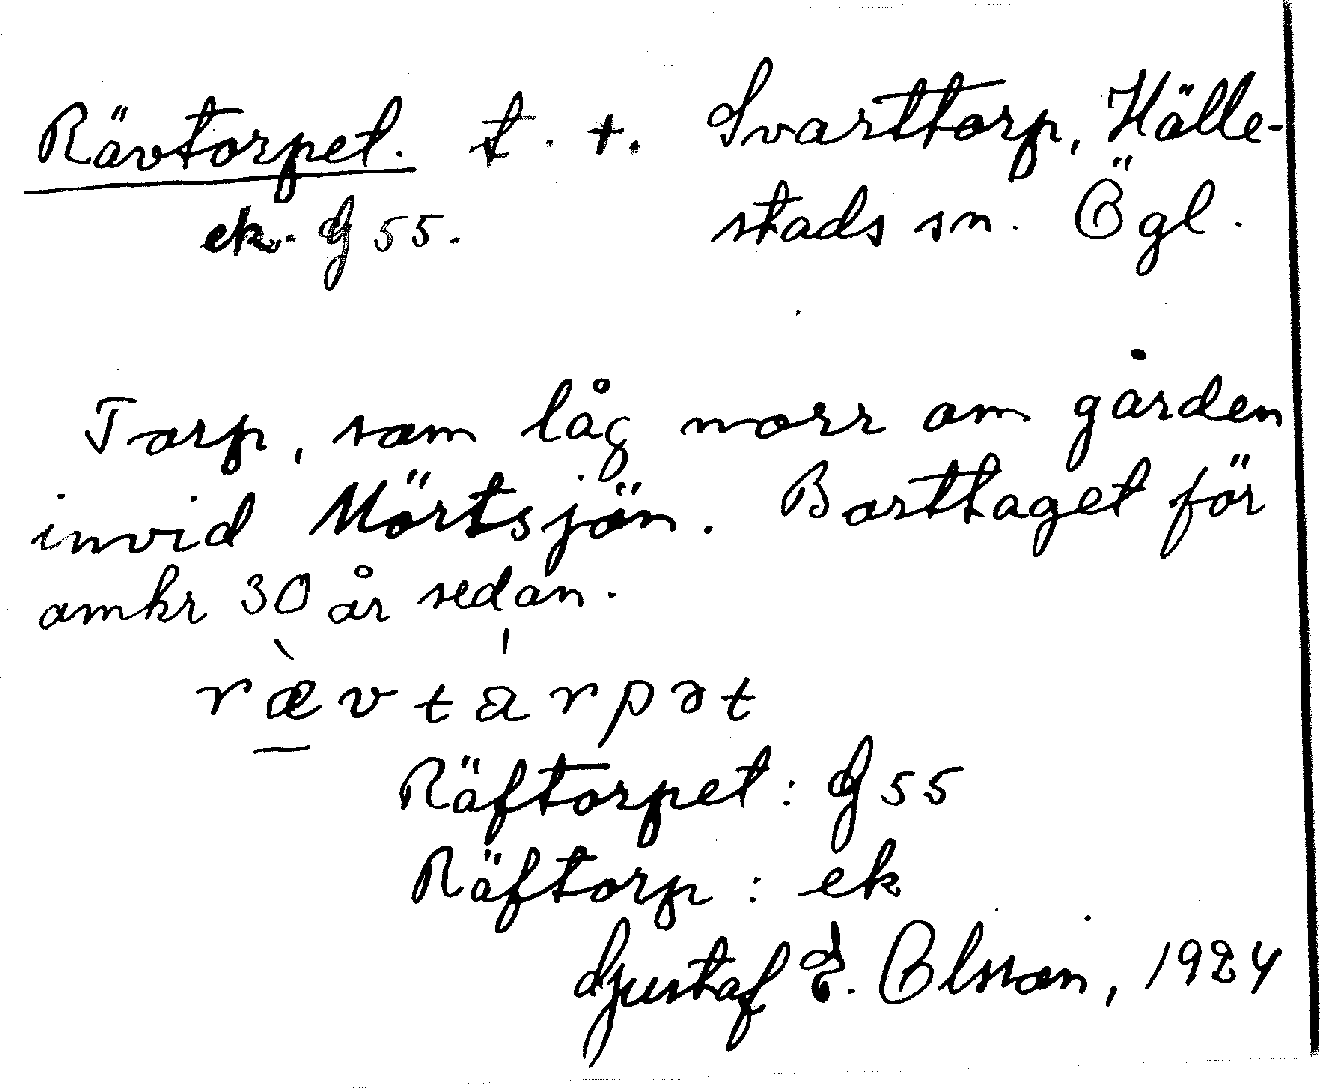 Rävtorpet. t. †. Svarttorp, Hälle-
ek. G 55. stads sn. Ögl.
Torp, som låg norr om gården
invid Mörtsjön. Borttaget för
omkr 30 år sedan.
rævtárpət
Räftorpet: G 55
Räftorp: ek
Gustaf E. Olsson, 1924